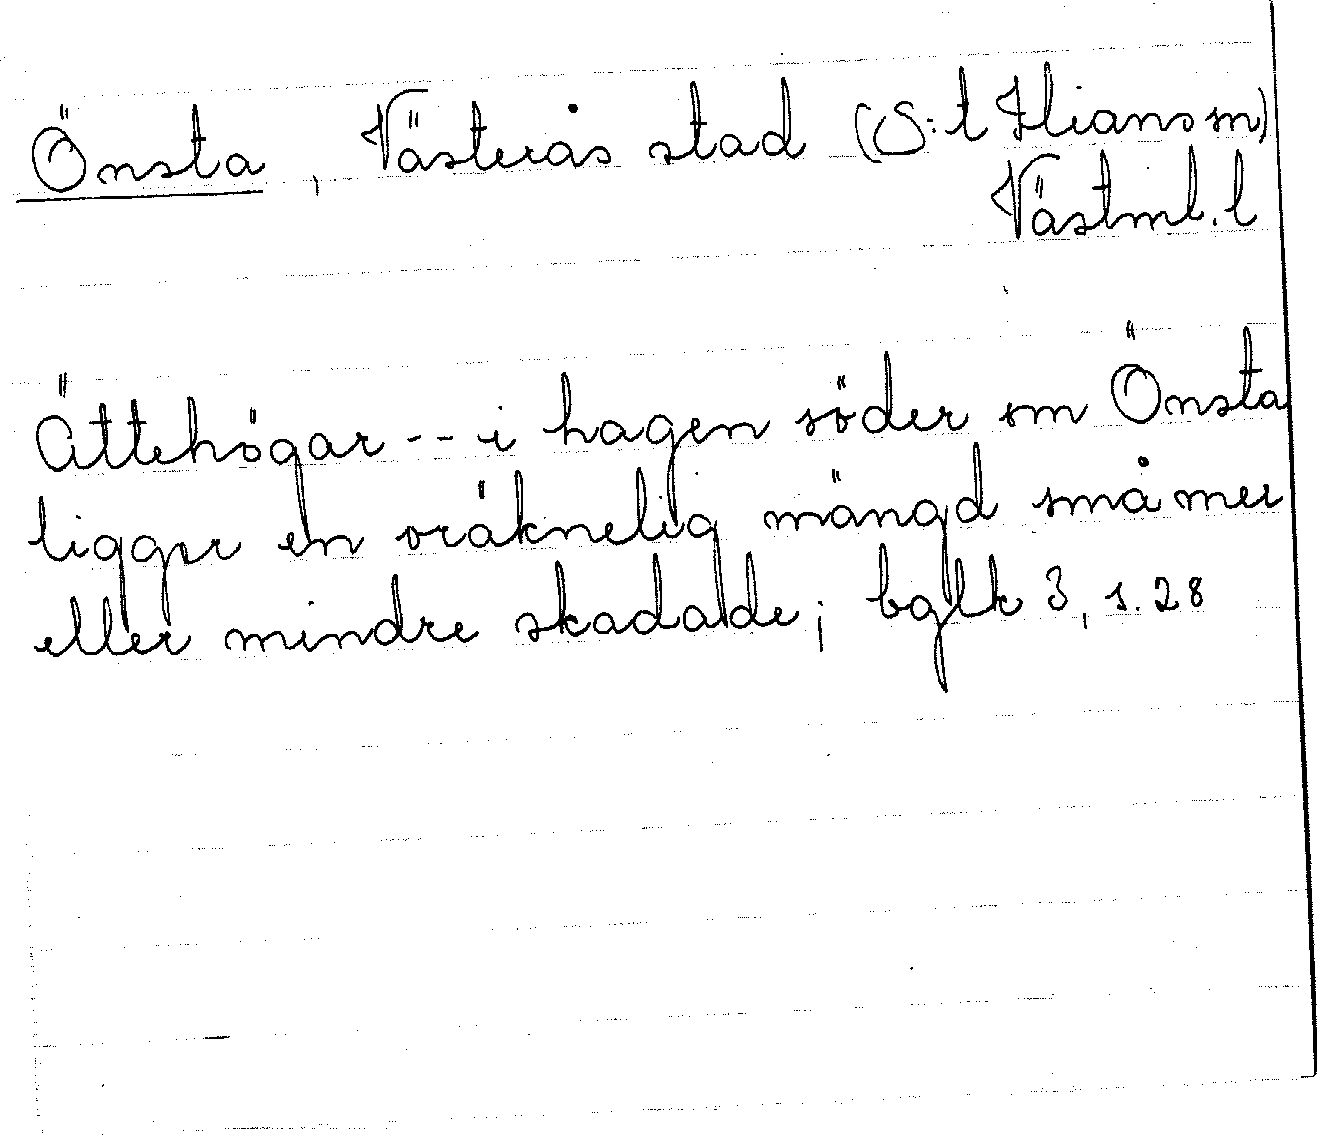 Önsta, Västerås stad (S:t Ilians sn)
Västml. l
Ättehögar -- i hagen söder om Önsta
ligger en oräknelig mängd små mer
eller mindre skadade; bglk 3, s. 28